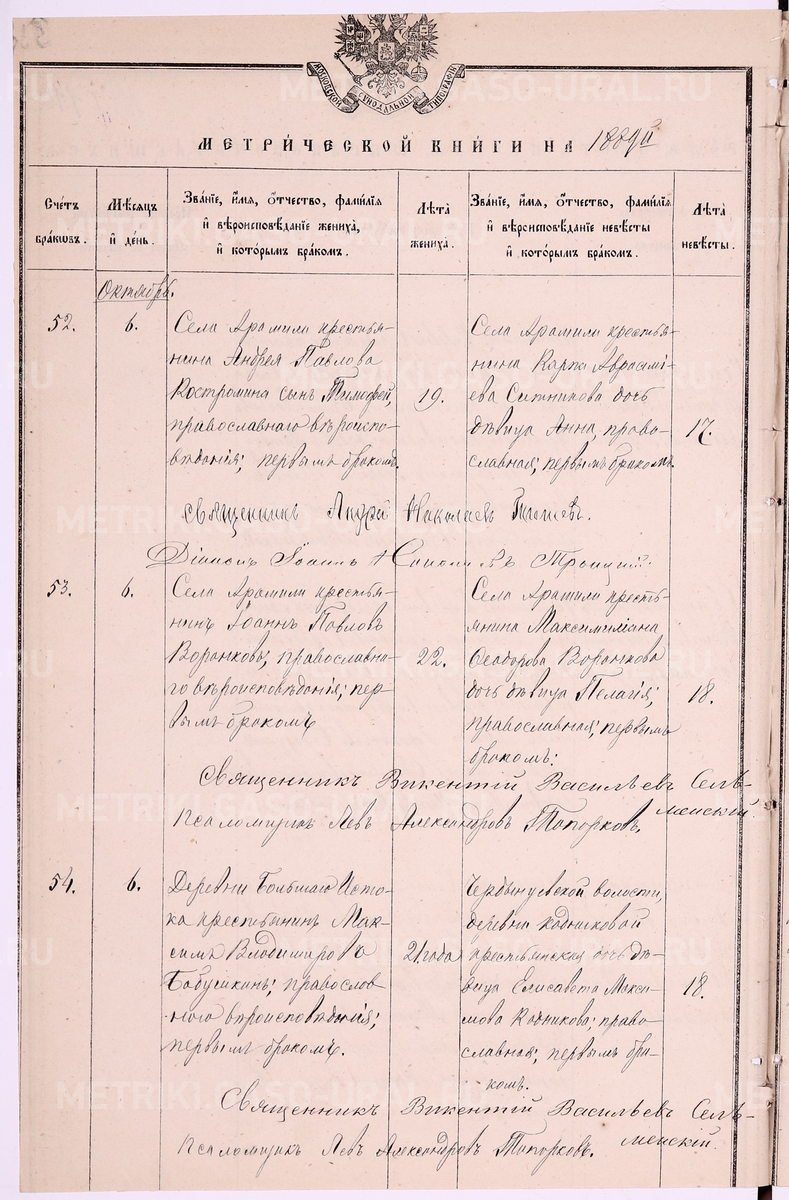 МОСКОВСКОЙ СѴНОДАЛЬНОЙ ТИПОГРАФІИ
МЕТРИ́ЧЕСКОЙ КНИ́ГИ НА 1889й
Сче́тъ бра́кωвъ.
Мѣ́сѧцъ и҆ де́нь.
Зва́нїе, и҆́мѧ, ѻ҆́тчество, фамѝлїѧ
и҆ вѣроисповѣ́данїе жениха̀,
и҆ кото́рымъ бра́комъ.
Лѣ̑та жениха̀.
Зва́нїе, и҆́мѧ, ѻ҆́тчество, фамѝлїѧ
и҆ вѣроисповѣ́данїе невѣ́сты
и҆ кото́рымъ бра́комъ.
Лѣ̑та невѣ́сты.
Октябрь.
52.
6.
Села Арамили крестья-
нина Андрея Павлова
Костромина сынъ Тимофей,
православнаго вѣроиспо-
вѣданія; первымъ бракомъ.
19.
Села Арамили крестья-
нина Карпа Аврамі-
ева Ситникова дочь
дѣвица Анна, право-
славная; первымъ бракомъ.
17.
Священникъ Андрей Николаевъ
Діаконъ Іоаннъ Троицкій.
53.
6.
Села Арамили крестья-
нинъ Іоаннъ Павловъ
Воронковъ, православна-
го вѣроисповѣданія; пер-
вымъ бракомъ
22.
Села Арамили кресть-
янина Максимиліана
Ѳеодорова Воронкова
дочь дѣвица Пелагія;
православная; первымъ
бракомъ:
18.
Священникъ Викентій Васильевъ Сель-
менскій.
Псаломщикъ Левъ Александровъ Топорковъ.
54.
6.
Деревни Большаго Исто-
ка крестьянинъ Мак-
симъ Владимировъ
Бабушкинъ; православ-
наго вѣроисповѣданія;
первымъ бракомъ.
21 года
волости,
деревни Кодниковой
крестьянская дочь дѣ-
вица Елисавета Макси-
мова Кодникова; право-
славная; первымъ бра-
комъ.
18.
Священникъ Викентій Васильевъ Селъ-
менскій.
Псаломщикъ Левъ Александровъ Топорковъ.
METRIKI.GASO-URAL.RU